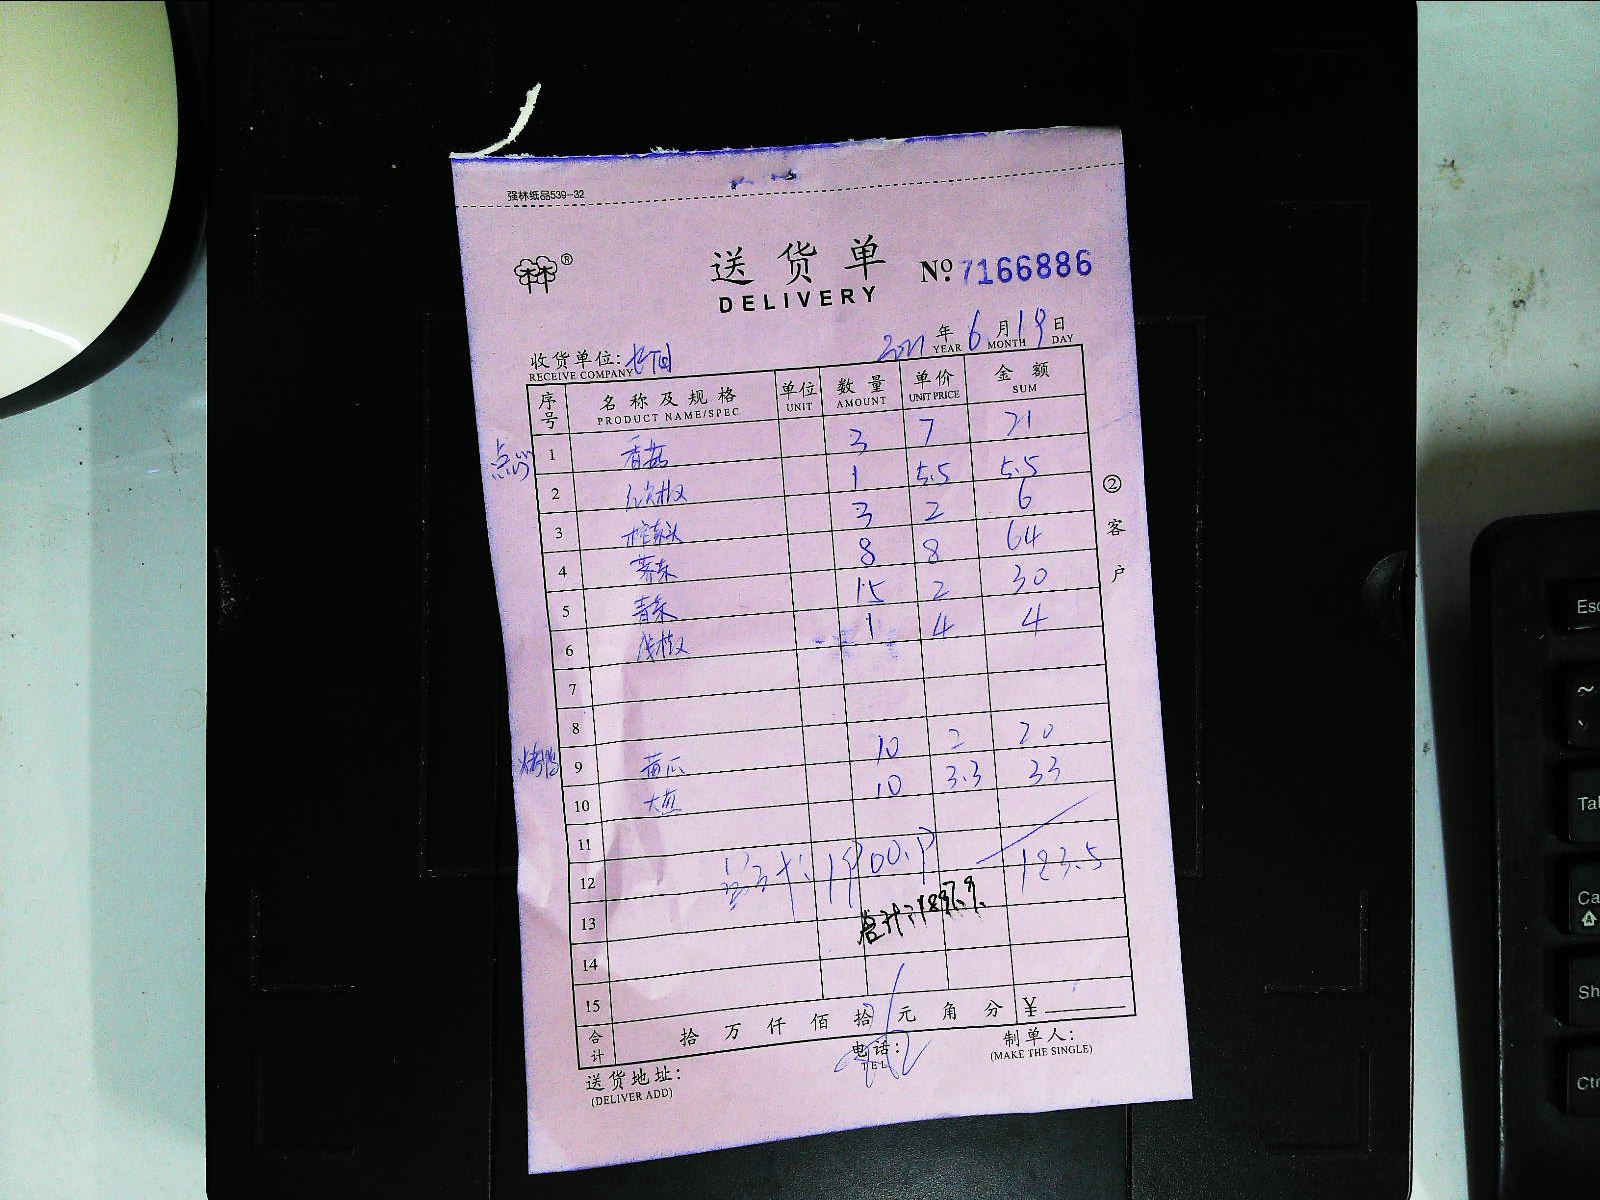 强林纸品539-32
®
送货单
DELIVERY
No. 7166886
2021 年 6 月 19 日
YEAR MONTH DAY
收货单位:
RECEIVE COMPANY
序号 名称及规格 单位 数量 单价 金额
PRODUCT NAME/SPEC UNIT AMOUNT UNIT PRICE SUM
点心
1 香菇 3 7 21
2 1 5.5 5.5
3 3 2 6
4 8 8 64
5 青菜 15 2 30
6 1 4 4
7
8
烤鸭
9 黄瓜 10 2 20
10 大 10 3.3 33
11
12 1900.9 123.5
13 合计:1897.9
14
15
合计 拾万仟佰拾元角分 ¥
②客户
送货地址:
(DELIVER ADD)
电话:
TEL
制单人:
(MAKE THE SINGLE)
Esc
~
Tab
Ca
Sh
Ctr